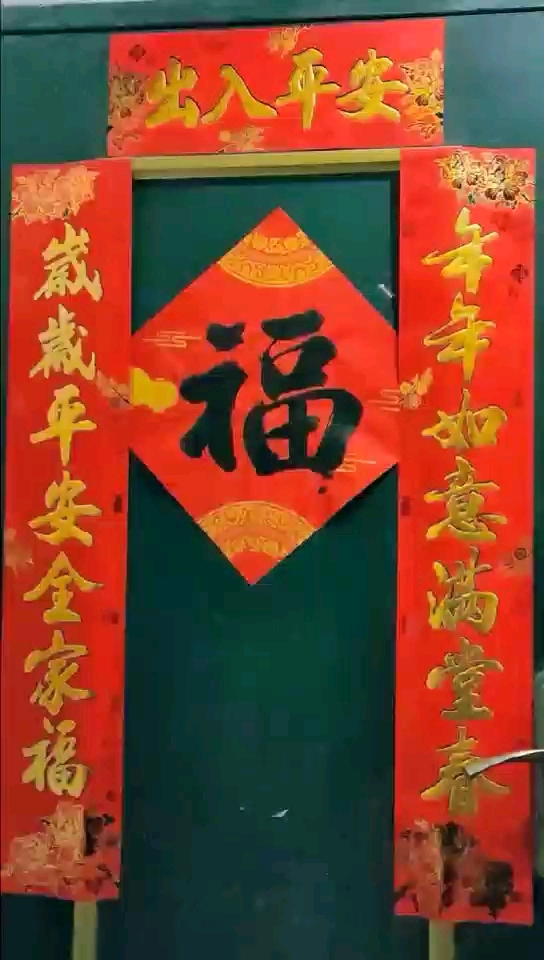 出入平安
年年如意滿堂春
歲歲平安全家福
福